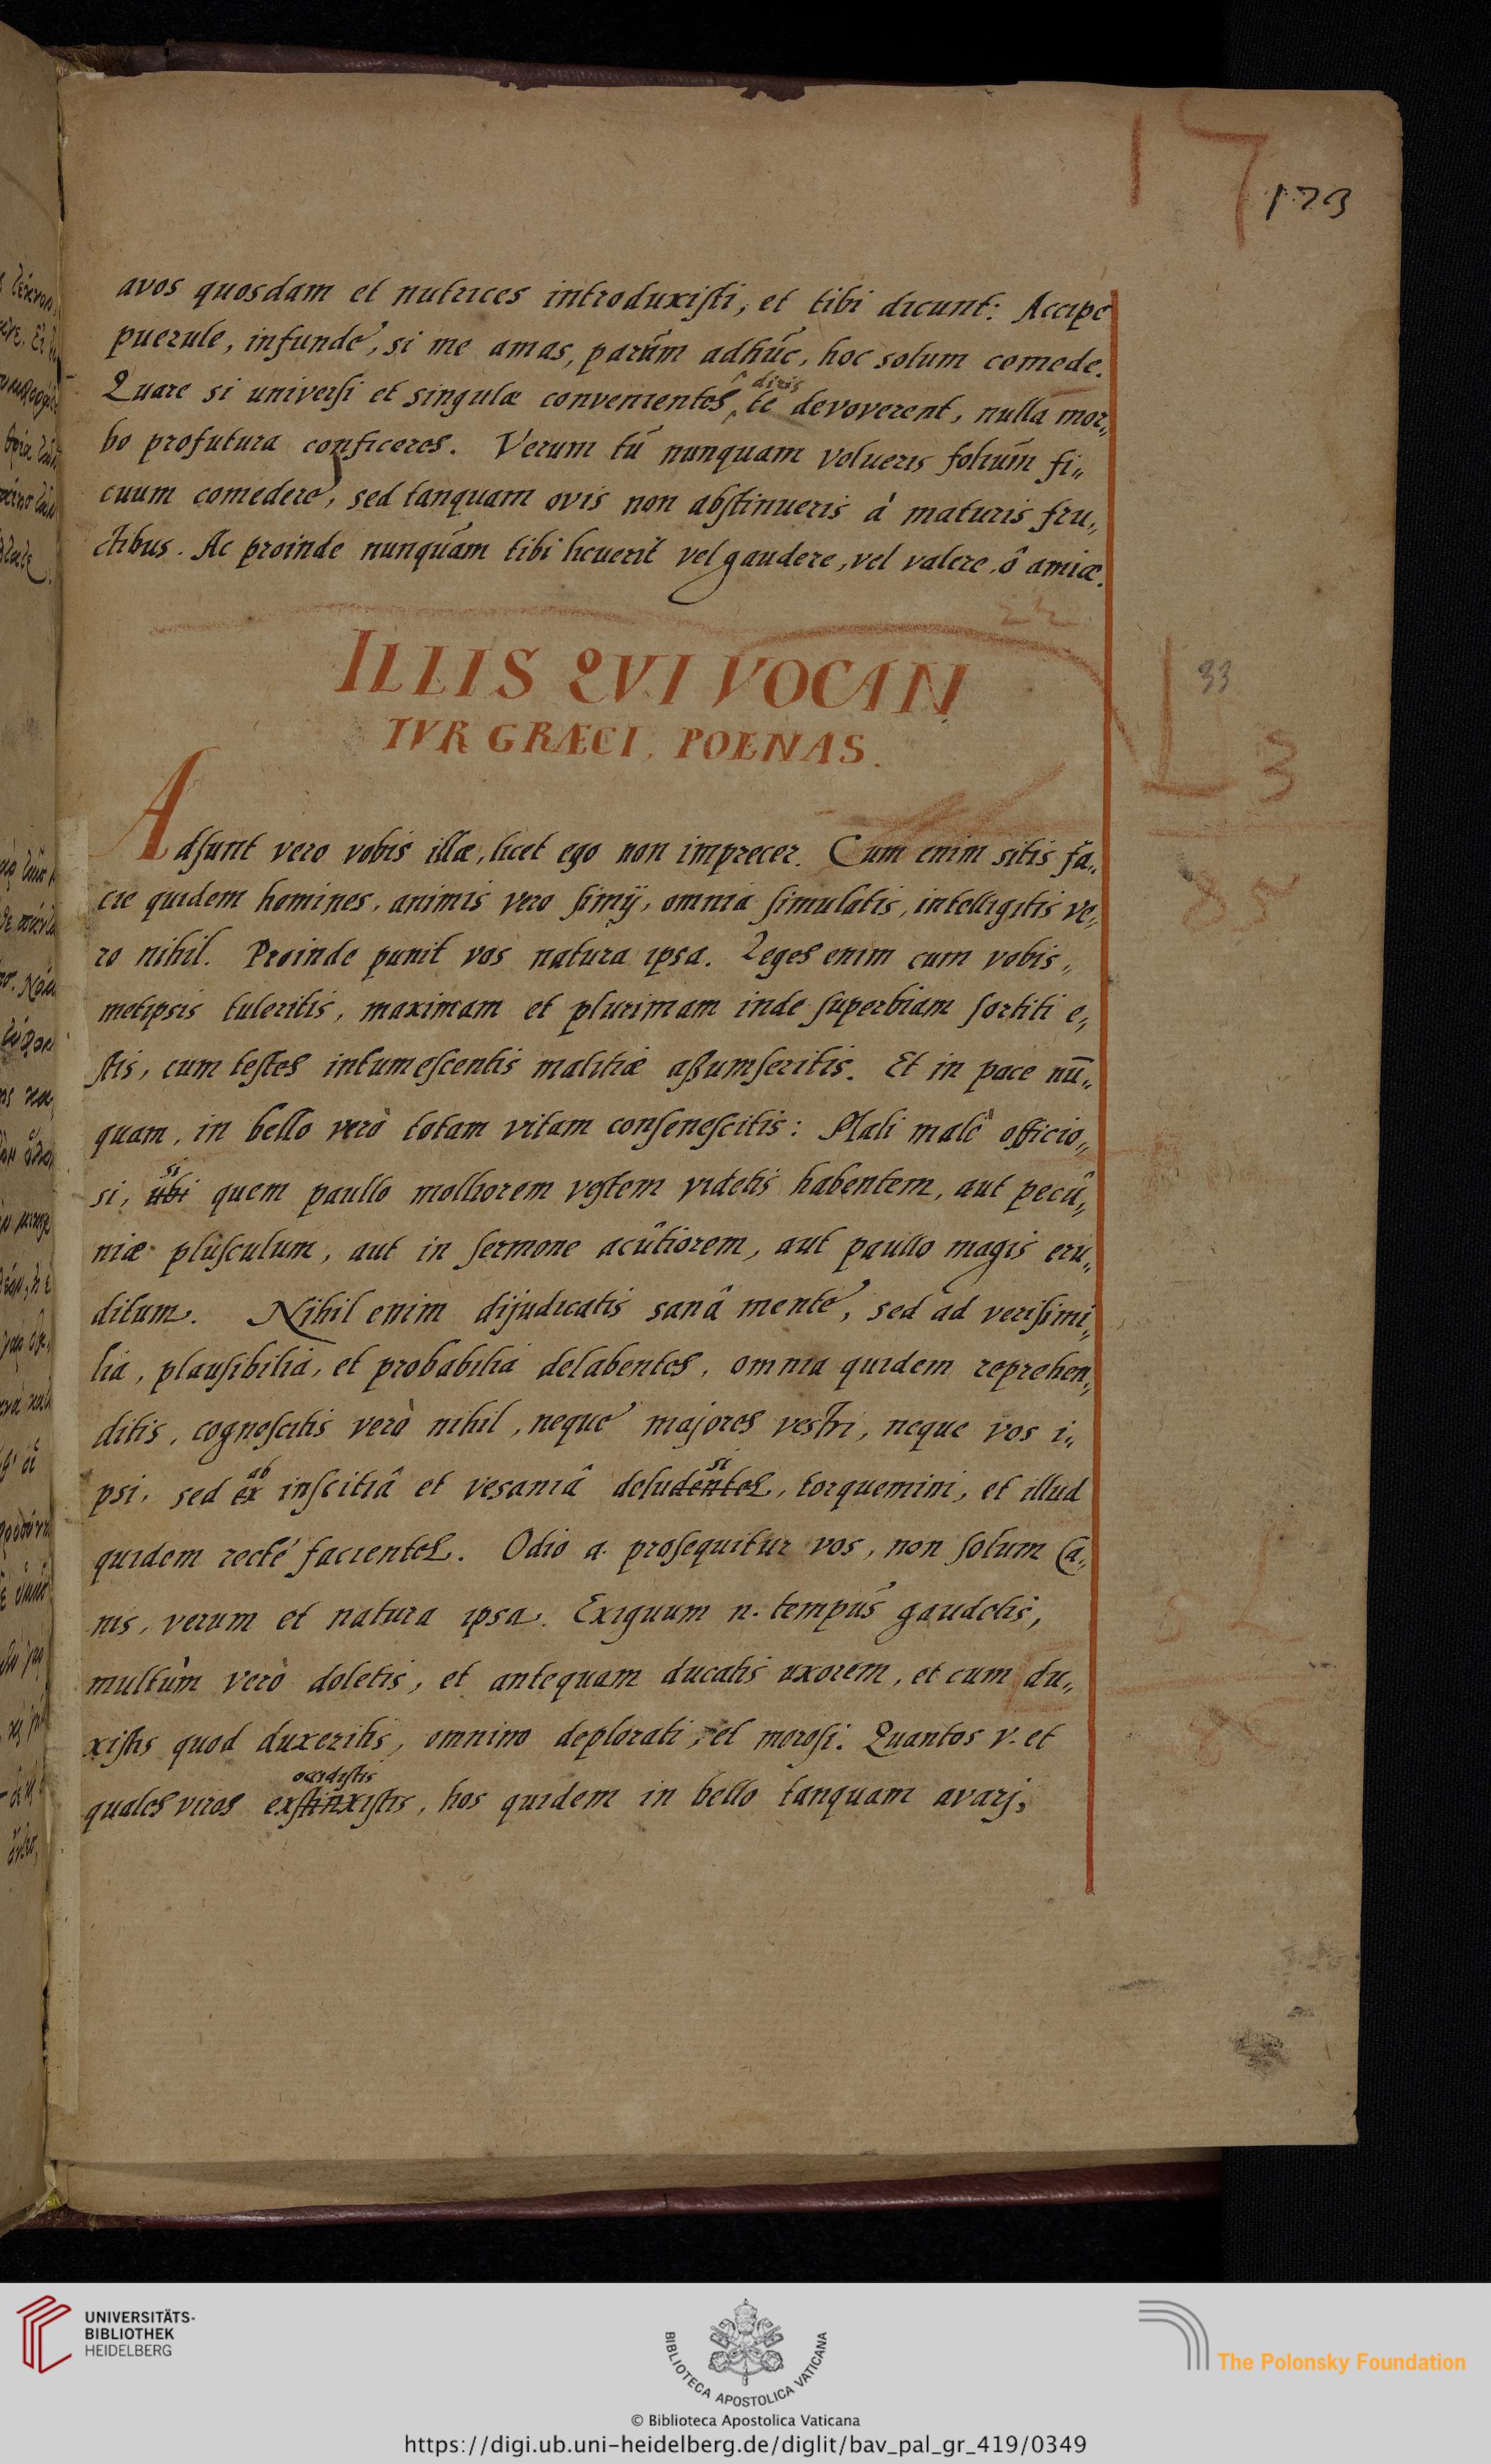 17
173
avos quosdam et nutrices introduxisti, et tibi dicunt: Accipe
puerule, infunde, si me amas, parùm adhuc, hoc solum comede.
Quare si universi et singulæ convenientes
te devoverent, nulla mor„
bo profutura conficeres. Verum tu nunquam volueris folium fi„
cuum comedere, sed tanquam ovis non abstinueris à maturis fru„
ctibus. Ac proinde nunquam tibi licuerit vel gaudere, vel valere, ô amice.
22
ILLIS QVI VOCAN
TVR GRÆCI, POENAS.
33
L
3
Adsunt vero vobis illæ, licet ego non imprecer. Cum enim sitis fa„
cie quidem homines, animis vero simij, omnia simulatis, intelligitis ve„
85
ro nihil. Proinde punit vos natura ipsa. Leges enim cum vobis„
metipsis tuleritis, maximam et plurimam inde superbiam sortiti e„
stis, cum testes intumescentis malitiæ aßumseritis. Et in pace nū„
quam, in bello verò totam vitam consenescitis: Mali malè officio„
si
si, ubi quem paullo molliorem vestem videtis habentem, aut pecu„
niæ plusculum, aut in sermone acutiorem, aut paullo magis eru„
ditum. Nihil enim dijudicatis sanâ mente, sed ad verisimi„
lia, plausibilia, et probabilia delabentes, omnia quidem reprehen„
ditis, cognoscitis verò nihil, neque majores vestri, neque vos i„
ab si
psi, sed ex inscitiâ et vesaniâ deludentes, torquemini, et illud
quidem rectè facientes. Odio a. prosequitur vos, non solum Ca„
nis, verum et natura ipsa. Exiguum n. tempus gaudetis,
multùm verò doletis, et antequam ducatis uxorem, et cum du„
86
xistis quod duxeritis, omnino deplorati, et morosi. Quantos v. et
occidistis
quales viros exstinxistis, hos quidem in bello tanquam avarj,
UNIVERSITÄTS-
BIBLIOTHEK
HEIDELBERG
BIBLIOTECA APOSTOLICA VATICANA
The Polonsky Foundation
© Biblioteca Apostolica Vaticana
https://digi.ub.uni-heidelberg.de/diglit/bav_pal_gr_419/0349